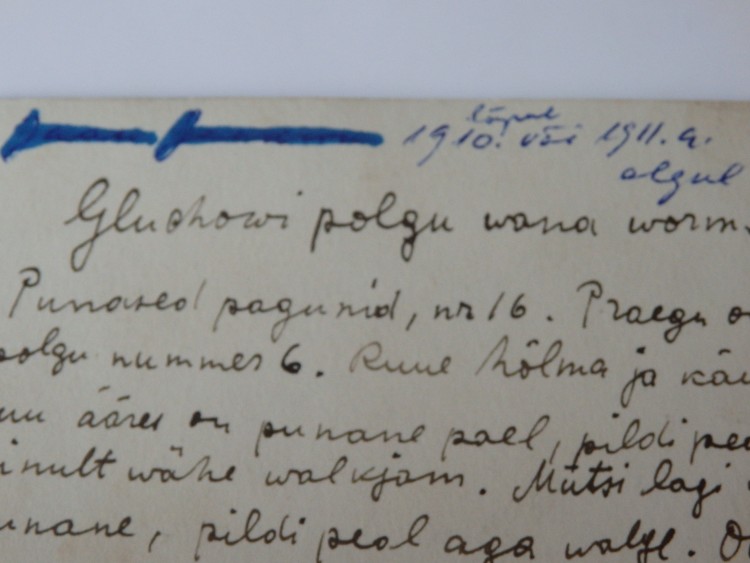 lõpul
1910. või 1911. a.
algul
Gluchowi polgu wana worm.
Punased pagunid, nr 16. Praegu on
polgu nummer 6. Kuue hõlma ja käi
suu ääres on punane pael, pildi peal
ainult wähe walkjam. Mütsi lagi
punane, pildi peal aga walge. On